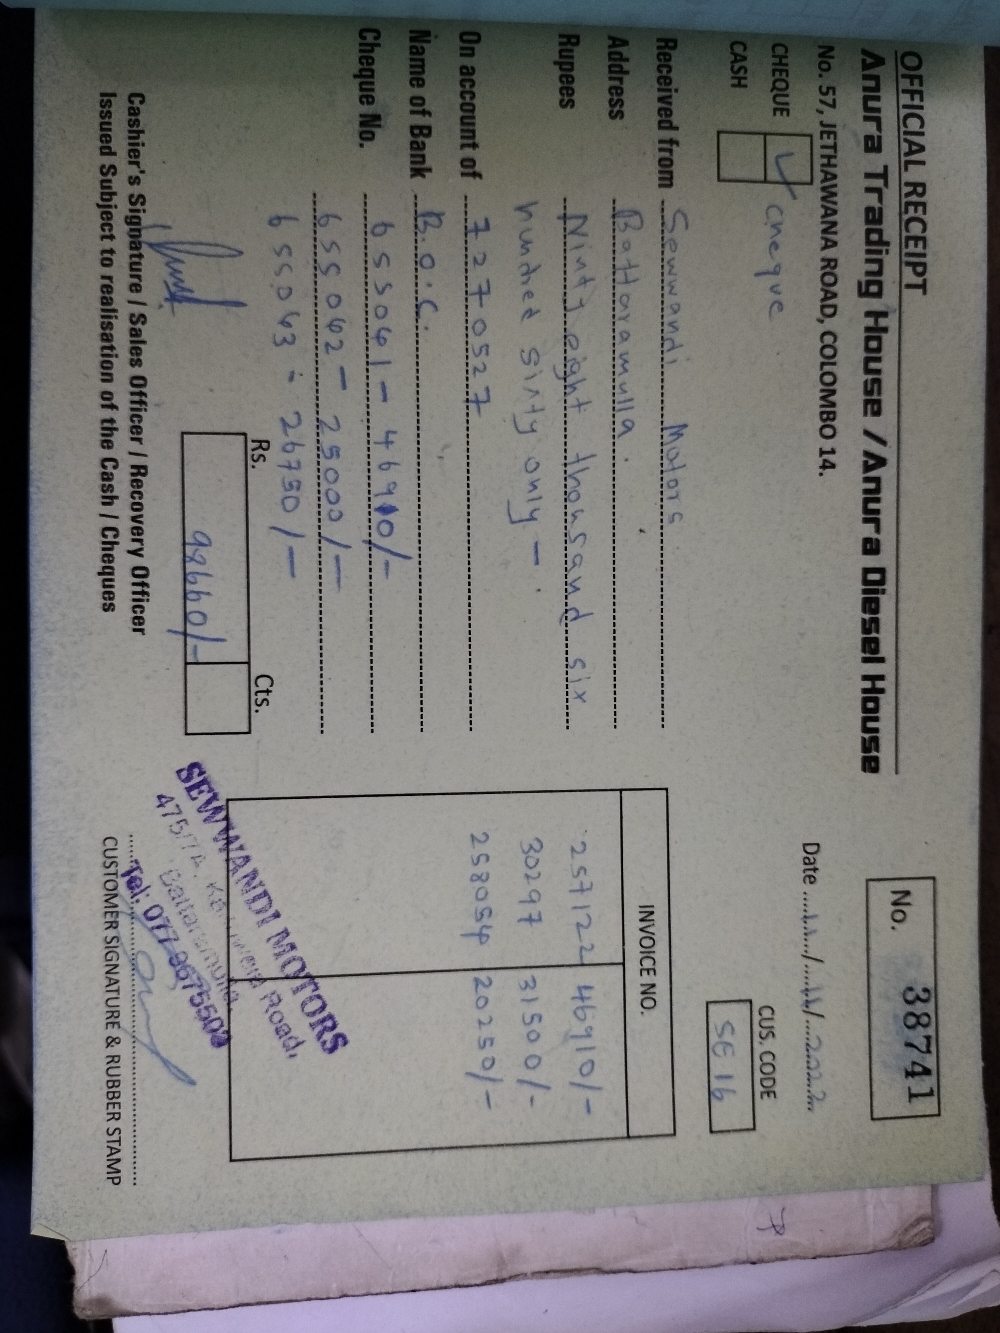 OFFICIAL RECEIPT
Anura Trading House / Anura Diesel House
No. 57, JETHAWANA ROAD, COLOMBO 14.
No. 38741
Date 11/11/2022
CHEQUE cheque
CASH
CUS. CODE
SE 16
Received from Sewwandi Motors
Address Battaramulla.
Rupees Ninty eight thousand six
hundred sixty only -
On account of 7270527
Name of Bank B.O.C.
Cheque No. 655061 - 46910/-
655062 - 25000/-
655063 - 26750/-
INVOICE NO.
257122 46910/-
30297 31500/-
258054 20250/-
Rs. Cts.
98660/-
SEWWANDI MOTORS
Road,
Battaramulla.
Cashier's Signature / Sales Officer / Recovery Officer
Issued Subject to realisation of the Cash / Cheques
CUSTOMER SIGNATURE & RUBBER STAMP